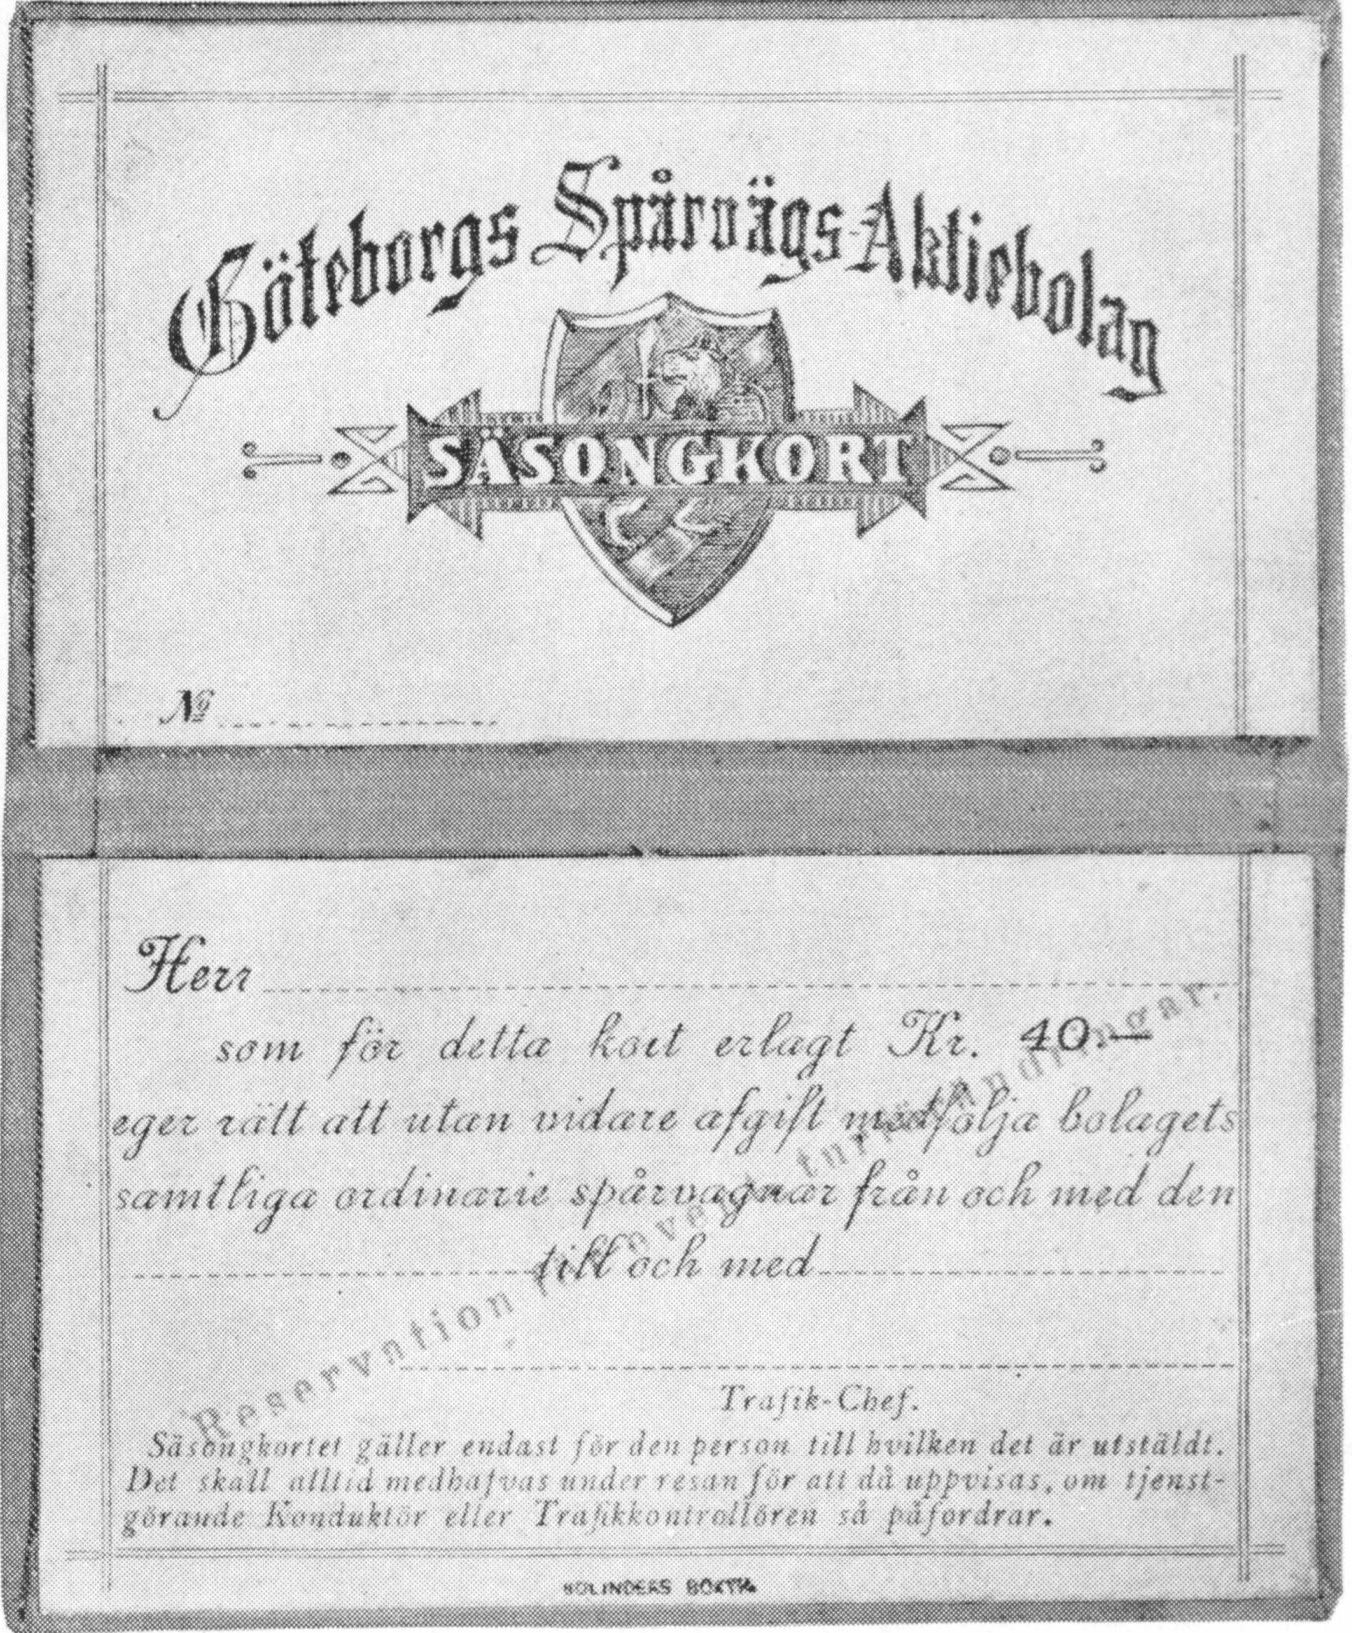 Göteborgs Spårvägs-Aktiebolag
SÄSONGKORT
№
Herr
som för detta kort erlagt Kr. 40.—
eger rätt att utan vidare afgift medfölja bolagets
samtliga ordinarie spårvagnar från och med den
till och med
Reservation för event. turförändringar.
Trafik-Chef.
Säsongkortet gäller endast för den person till hvilken det är utstäldt.
Det skall alltid medhafvas under resan för att då uppvisas, om tjenst-
görande Konduktör eller Trafikkontrollören så påfordrar.
BOLINDERS BOKTR.